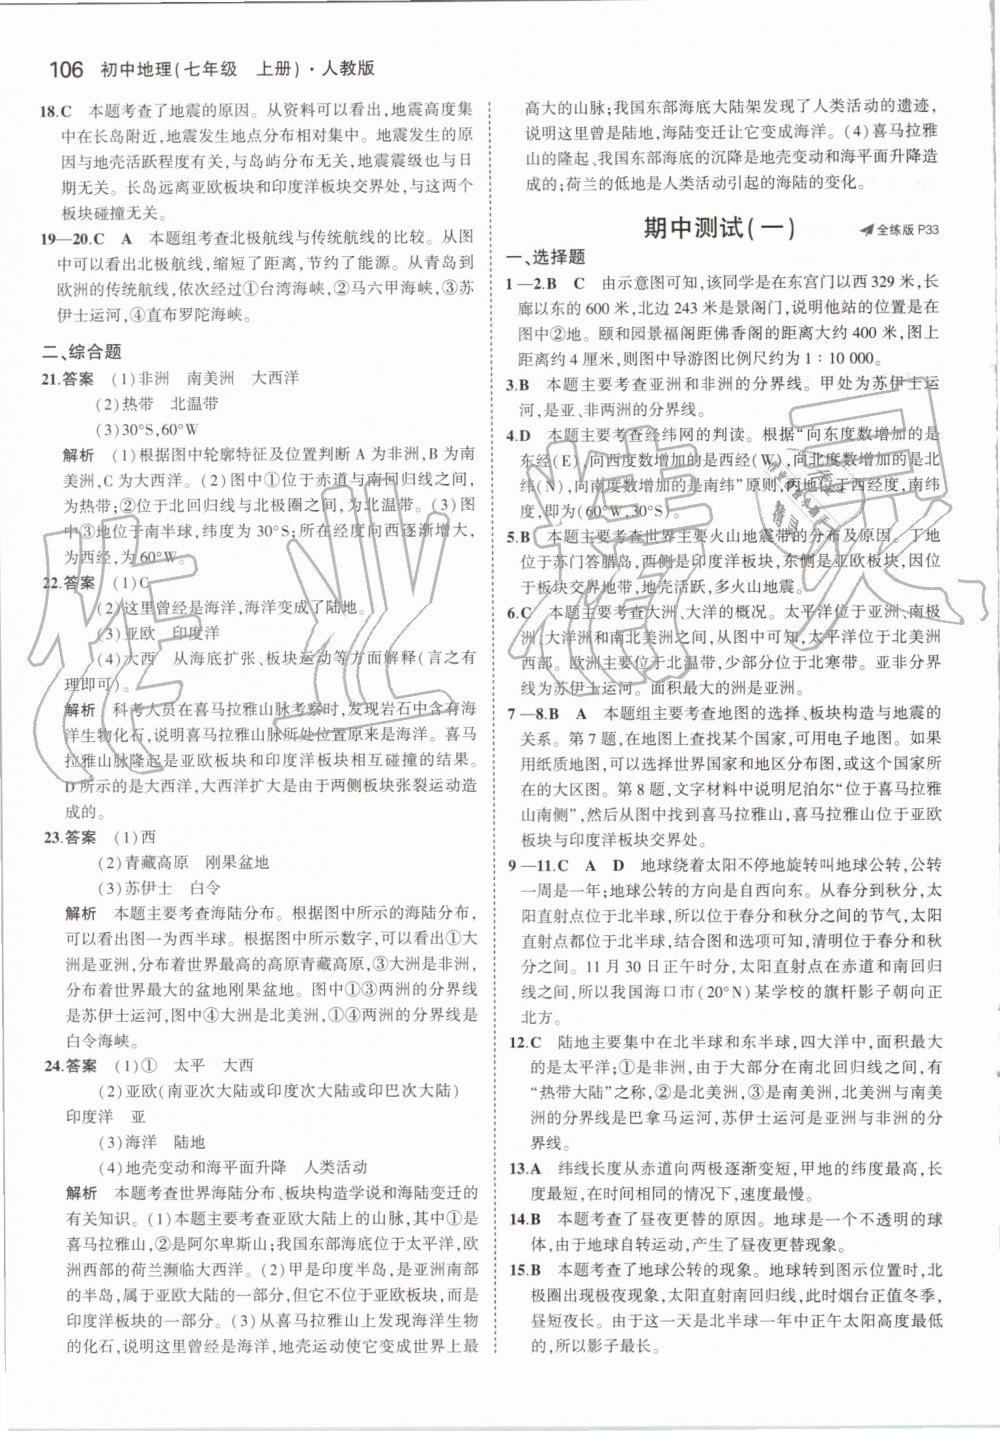 106 初中地理(七年级 上册)·人教版
18.C 本题考查了地震的原因。从资料可以看出,地震高度集
中在长岛附近,地震发生地点分布相对集中。地震发生的原
因与地壳活跃程度有关,与岛屿分布无关,地震震级也与日
期无关。长岛远离亚欧板块和印度洋板块交界处,与这两个
板块碰撞无关。
19—20.C A 本题组考查北极航线与传统航线的比较。从图
中可以看出北极航线,缩短了距离,节约了能源。从青岛到
欧洲的传统航线,依次经过①台湾海峡,②马六甲海峡,③苏
伊士运河,④直布罗陀海峡。
二、综合题
21.答案 (1)非洲 南美洲 大西洋
(2)热带 北温带
(3)30°S,60°W
解析 (1)根据图中轮廓特征及位置判断A为非洲,B为南
美洲,C为大西洋。(2)图中①位于赤道与南回归线之间,
为热带;②位于北回归线与北极圈之间,为北温带。(3)图
中③地位于南半球,纬度为30°S;所在经度向西逐渐增大,
为西经,为60°W。
22.答案 (1)C
(2)这里曾经是海洋,海洋变成了陆地。
(3)亚欧 印度洋
(4)大西 从海底扩张、板块运动等方面解释(言之有
理即可)。
解析 科考人员在喜马拉雅山脉考察时,发现岩石中含有海
洋生物化石,说明喜马拉雅山脉所处位置原来是海洋。喜马
拉雅山脉隆起是亚欧板块和印度洋板块相互碰撞的结果。
D所示的是大西洋,大西洋扩大是由于两侧板块张裂运动造
成的。
23.答案 (1)西
(2)青藏高原 刚果盆地
(3)苏伊士 白令
解析 本题主要考查海陆分布。根据图中所示的海陆分布,
可以看出图一为西半球。根据图中所示数字,可以看出①大
洲是亚洲,分布着世界最高的高原青藏高原,③大洲是非洲,
分布着世界最大的盆地刚果盆地。图中①③两洲的分界线
是苏伊士运河,图中④大洲是北美洲,①④两洲的分界线是
白令海峡。
24.答案 (1)① 太平 大西
(2)亚欧(南亚次大陆或印度次大陆或印巴次大陆)
印度洋 亚
(3)海洋 陆地
(4)地壳变动和海平面升降 人类活动
解析 本题考查世界海陆分布、板块构造学说和海陆变迁的
有关知识。(1)本题主要考查亚欧大陆上的山脉,其中①是
喜马拉雅山,②是阿尔卑斯山;我国东部海底位于太平洋,欧
洲西部的荷兰濒临大西洋。(2)甲是印度半岛,是亚洲南部
的半岛,属于亚欧大陆的一部分,但它不位于亚欧板块,而是
印度洋板块的一部分。(3)从喜马拉雅山上发现海洋生物
的化石,说明这里曾经是海洋,地壳运动使它变成世界上最
高大的山脉;我国东部海底大陆架发现了人类活动的遗迹,
说明这里曾是陆地,海陆变迁让它变成海洋。(4)喜马拉雅
山的隆起、我国东部海底的沉降是地壳变动和海平面升降造
成的;荷兰的低地是人类活动引起的海陆的变化。
期中测试(一) 全练版 P33
一、选择题
1—2.B C 由示意图可知,该同学是在东宫门以西329米,长
廊以东的600米,北边243米是景阁门,说明他站的位置是在
图中②地。颐和园景福阁距佛香阁的距离大约400米,图上
距离约4厘米,则图中导游图比例尺约为1∶10 000。
3.B 本题主要考查亚洲和非洲的分界线。甲处为苏伊士运
河,是亚、非两洲的分界线。
4.D 本题主要考查经纬网的判读。根据“向东度数增加的是
东经(E),向西度数增加的是西经(W),向北度数增加的是北
纬(N),向南度数增加的是南纬”可知,丙地位于西经度,南纬
度,即为(60°W,30°S)。
5.B 本题主要考查世界主要火山地震带的分布及原因。丁地
位于苏门答腊岛,西侧是印度洋板块,东侧是亚欧板块,因位
于板块交界地带,地壳活跃,多火山地震。
6.C 本题主要考查大洲、大洋的概况。太平洋位于亚洲、南极
洲、大洋洲和南北美洲之间,从图示可知,太平洋位于北美洲
西部。欧洲主要位于北温带,少部分位于北寒带。亚非分界
线为苏伊士运河。面积最大的洲是亚洲。
7—8.B A 本题组主要考查地图的选择、板块构造与地震的
关系。第7题,在地图上查找某个国家,可用电子地图。如果
用纸质地图,可以选择世界国家和地区分布图,或这个国家所
在的大区图。第8题,文字材料中说明尼泊尔“位于喜马拉雅
山南侧”,然后从图中找到喜马拉雅山,喜马拉雅山位于亚欧
板块与印度洋板块交界处。
9—11.C A D 地球绕着太阳不停地旋转叫地球公转,公转
一周是一年;地球公转的方向是自西向东。从春分到秋分,太
阳直射点位于北半球,结合位于春分和秋分之间的节气,太阳
直射点都位于北半球,结合图和选项可知,清明位于春分和秋
分之间。11月30日正午时分,太阳直射点在赤道和南回归
线之间,所以我国海口市(20°N)某学校的旗杆影子朝向正
北方。
12.C 陆地主要集中在北半球和东半球,四大洋中,面积最大
的是太平洋;①是非洲,由于大部分在南北回归线之间,有
“热带大陆”之称,②是北美洲,③是南美洲,北美洲和南美
洲的分界线是巴拿马运河,苏伊士运河是亚洲与非洲的分
界线。
13.A 纬线长度从赤道向两极逐渐变短,甲地的纬度最高,长
度最短,在时间相同的情况下,速度最慢。
14.B 本题考查了昼夜更替的原因。地球是一个不透明的球
体,由于地球自转运动,产生了昼夜更替现象。
15.B 本题考查了地球公转的现象。地球转到图示位置时,北
极圈出现极夜现象,太阳直射南回归线,此时烟台正值冬季,
昼短夜长。由于这一天是北半球一年中正午太阳高度最低
的,所以影子最长。
作业精灵